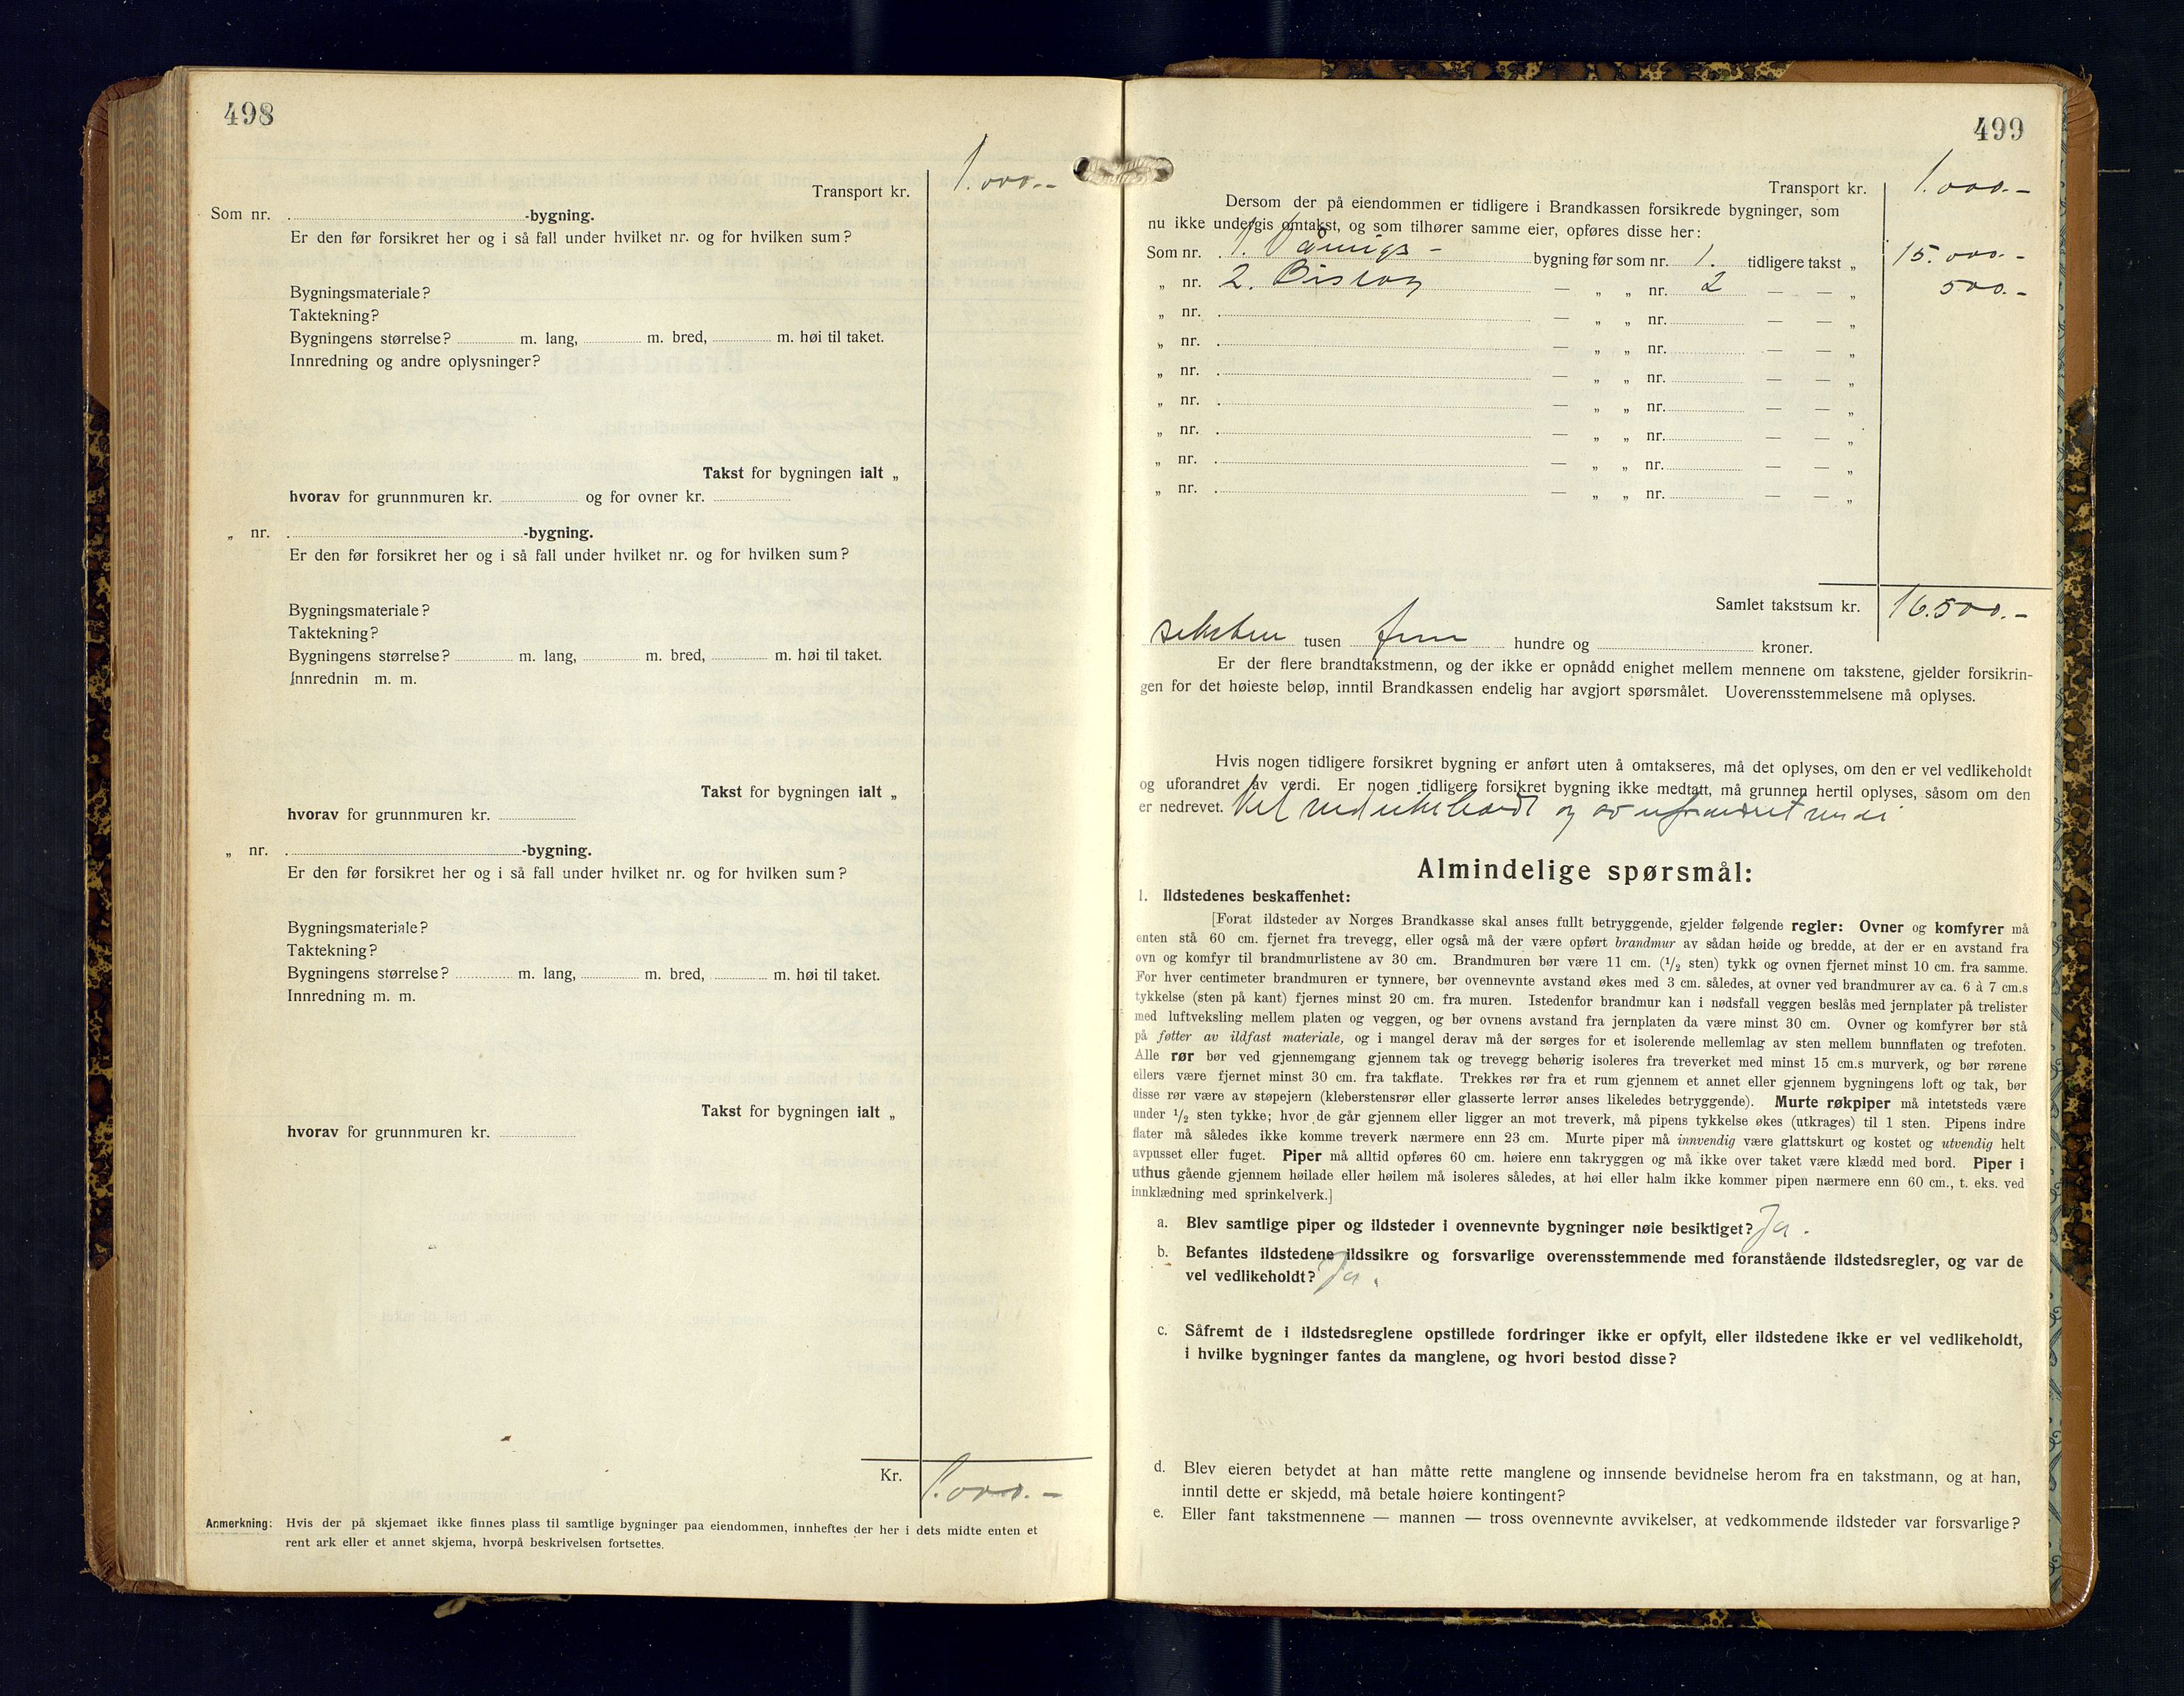 498
Transport kr. 1.000.-
Som nr. -bygning.
Er den før forsikret her og i så fall under hvilket nr. og for hvilken sum?
Bygningsmateriale?
Taktekning?
Bygningens størrelse? m. lang, m. bred, m. høi til taket.
Innredning og andre oplysninger?
Takst for bygningen ialt „
hvorav for grunnmuren kr. og for ovner kr.
„ nr. -bygning.
Er den før forsikret her og i så fall under hvilket nr. og for hvilken sum?
Bygningsmateriale?
Taktekning?
Bygningens størrelse? m. lang, m. bred, m. høi til taket.
Innrednin m. m.
Takst for bygningen ialt „
hvorav for grunnmuren kr.
„ nr. -bygning.
Er den før forsikret her og i så fall under hvilket nr. og for hvilken sum?
Bygningsmateriale?
Taktekning?
Bygningens størrelse? m. lang, m. bred, m. høi til taket.
Innredning m. m.
Takst for bygningen ialt „
hvorav for grunnmuren kr.
Kr. 1.000.-
Anmerkning: Hvis der på skjemaet ikke finnes plass til samtlige bygninger paa eiendommen, innheftes der her i dets midte enten et
rent ark eller et annet skjema, hvorpå beskrivelsen fortsettes.
499
Transport kr. 1.000.-
Dersom der på eiendommen er tidligere i Brandkassen forsikrede bygninger, som
nu ikke undergis omtakst, og som tilhører samme eier, opføres disse her:
Som nr. 1. Vånings- bygning før som nr. 1. tidligere takst „ 15.000.-
„ nr. 2. — „ „ nr. 2 — — „ 500.-
„ nr. — „ „ nr. — — „
„ nr. — „ „ nr. — — „
„ nr. — „ „ nr. — — „
„ nr. — „ „ nr. — — „
„ nr. — „ „ nr. — — „
„ nr. — „ „ nr. — — „
„ nr. — „ „ nr. — — „
Samlet takstsum kr. 16.500.-
seksten tusen fem hundre og kroner.
Er der flere brandtakstmenn, og der ikke er opnådd enighet mellem mennene om takstene, gjelder forsikrin-
gen for det høieste beløp, inntil Brandkassen endelig har avgjort spørsmålet. Uoverensstemmelsene må oplyses.
Hvis nogen tidligere forsikret bygning er anført uten å omtakseres, må det oplyses, om den er vel vedlikeholdt
og uforandret av verdi. Er nogen tidligere forsikret bygning ikke medtatt, må grunnen hertil oplyses, såsom om den
er nedrevet. Vel vedlikeholdt og av uforandret verdi
Almindelige spørsmål:
1. Ildstedenes beskaffenhet:
[Forat ildsteder av Norges Brandkasse skal anses fullt betryggende, gjelder følgende regler: Ovner og komfyrer må
enten stå 60 cm. fjernet fra trevegg, eller også må der være opført brandmur av sådan høide og bredde, at der er en avstand fra
ovn og komfyr til brandmurlistene av 30 cm. Brandmuren bør være 11 cm. (1/2 sten) tykk og ovnen fjernet minst 10 cm. fra samme.
For hver centimeter brandmuren er tynnere, bør ovennevnte avstand økes med 3 cm. således, at ovner ved brandmurer av ca. 6 à 7 cm.s
tykkelse (sten på kant) fjernes minst 20 cm. fra muren. Istedenfor brandmur kan i nødsfall veggen beslås med jernplater på trelister
med luftveksling mellem platen og veggen, og bør ovnens avstand fra jernplaten da være minst 30 cm. Ovner og komfyrer bør stå
på føtter av ildfast materiale, og i mangel derav må der sørges for et isolerende mellemlag av sten mellem bunnflaten og trefoten.
Alle rør bør ved gjennemgang gjennem tak og trevegg behørig isoleres fra treverket med minst 15 cm.s murverk, og bør rørene
ellers være fjernet minst 30 cm. fra takflate. Trekkes rør fra et rum gjennem et annet eller gjennem bygningens loft og tak, bør
disse rør være av støpejern (kleberstensrør eller glasserte lerrør anses likeledes betryggende). Murte røkpiper må intetsteds være
under 1/2 sten tykke; hvor de går gjennem eller ligger an mot treverk, må pipens tykkelse økes (utkrages) til 1 sten. Pipens indre
flater må således ikke komme treverk nærmere enn 23 cm. Murte piper må innvendig være glattskurt og kostet og utvendig helt
avpusset eller fuget. Piper må alltid opføres 60 cm. høiere enn takryggen og må ikke over taket være klædd med bord. Piper i
uthus gående gjennem høilade eller høilem må isoleres således, at høi eller halm ikke kommer pipen nærmere enn 60 cm., t. eks. ved
innklædning med sprinkelverk.]
a. Blev samtlige piper og ildsteder i ovennevnte bygninger nøie besiktiget? Ja.
b. Befantes ildstedene ildssikre og forsvarlige overensstemmende med foranstående ildstedsregler, og var de
vel vedlikeholdt? Ja.
c. Såfremt de i ildstedsreglene opstillede fordringer ikke er opfylt, eller ildstedene ikke er vel vedlikeholdt,
i hvilke bygninger fantes da manglene, og hvori bestod disse?
d. Blev eieren betydet at han måtte rette manglene og innsende bevidnelse herom fra en takstmann, og at han,
inntil dette er skjedd, må betale høiere kontingent?
e. Eller fant takstmennene — mannen — tross ovennevnte avvikelser, at vedkommende ildsteder var forsvarlige?